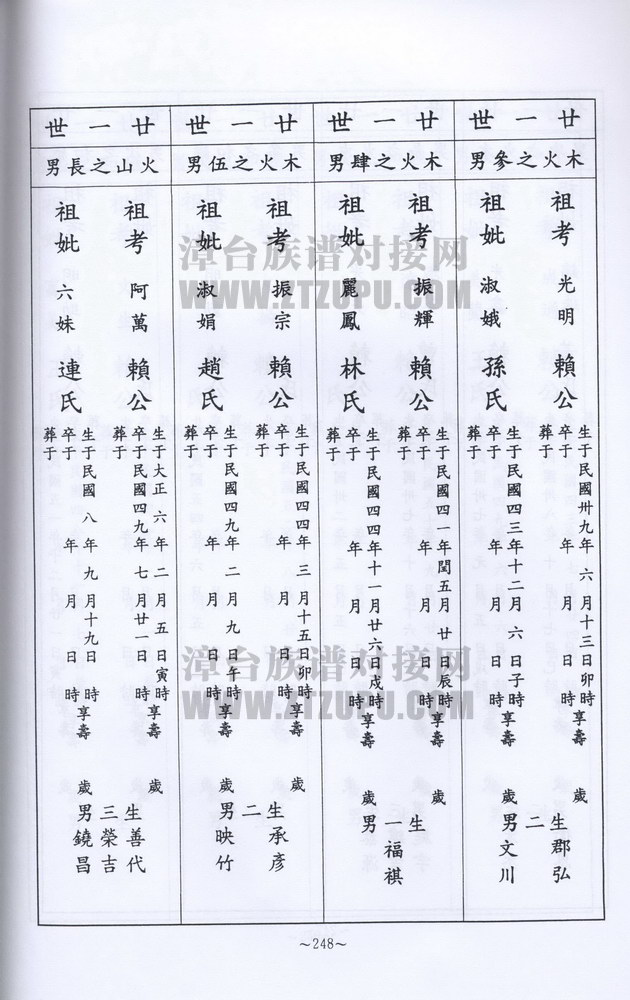 廿一世
木火之參男
祖考 光明 賴公
生于民國卅九年 六 月十三日卯時享壽 歲
卒于 年 月 日 時
葬于
祖妣 淑娥 孫氏
生于民國四三年十二月 六 日子時享壽 歲
卒于 年 月 日 時
葬于
生二男 郡弘 文川
廿一世
木火之肆男
祖考 振輝 賴公
生于民國四一年閏五月 廿 日辰時享壽 歲
卒于 年 月 日 時
葬于
祖妣 麗鳳 林氏
生于民國四四年十一月廿六日戌時享壽 歲
卒于 年 月 日 時
葬于
生一男 福祺
廿一世
木火之伍男
祖考 振宗 賴公
生于民國四四年 三 月十五日卯時享壽 歲
卒于 年 月 日 時
葬于
祖妣 淑娟 趙氏
生于民國四九年 二 月 九 日午時享壽 歲
卒于 年 月 日 時
葬于
生二男 承彥 映竹
廿一世
火山之長男
祖考 阿萬 賴公
生于大正 六 年 二 月 五 日寅時享壽 歲
卒于民國四九年 七 月廿一日 時
葬于
祖妣 六妹 連氏
生于民國 八 年 九 月十九日 時享壽 歲
卒于 年 月 日 時
葬于
生三男 善代 榮吉 鐃昌
~248~
漳台族谱对接网
WWW.ZTZUPU.COM
漳台族谱对接网
WWW.ZTZUPU.COM